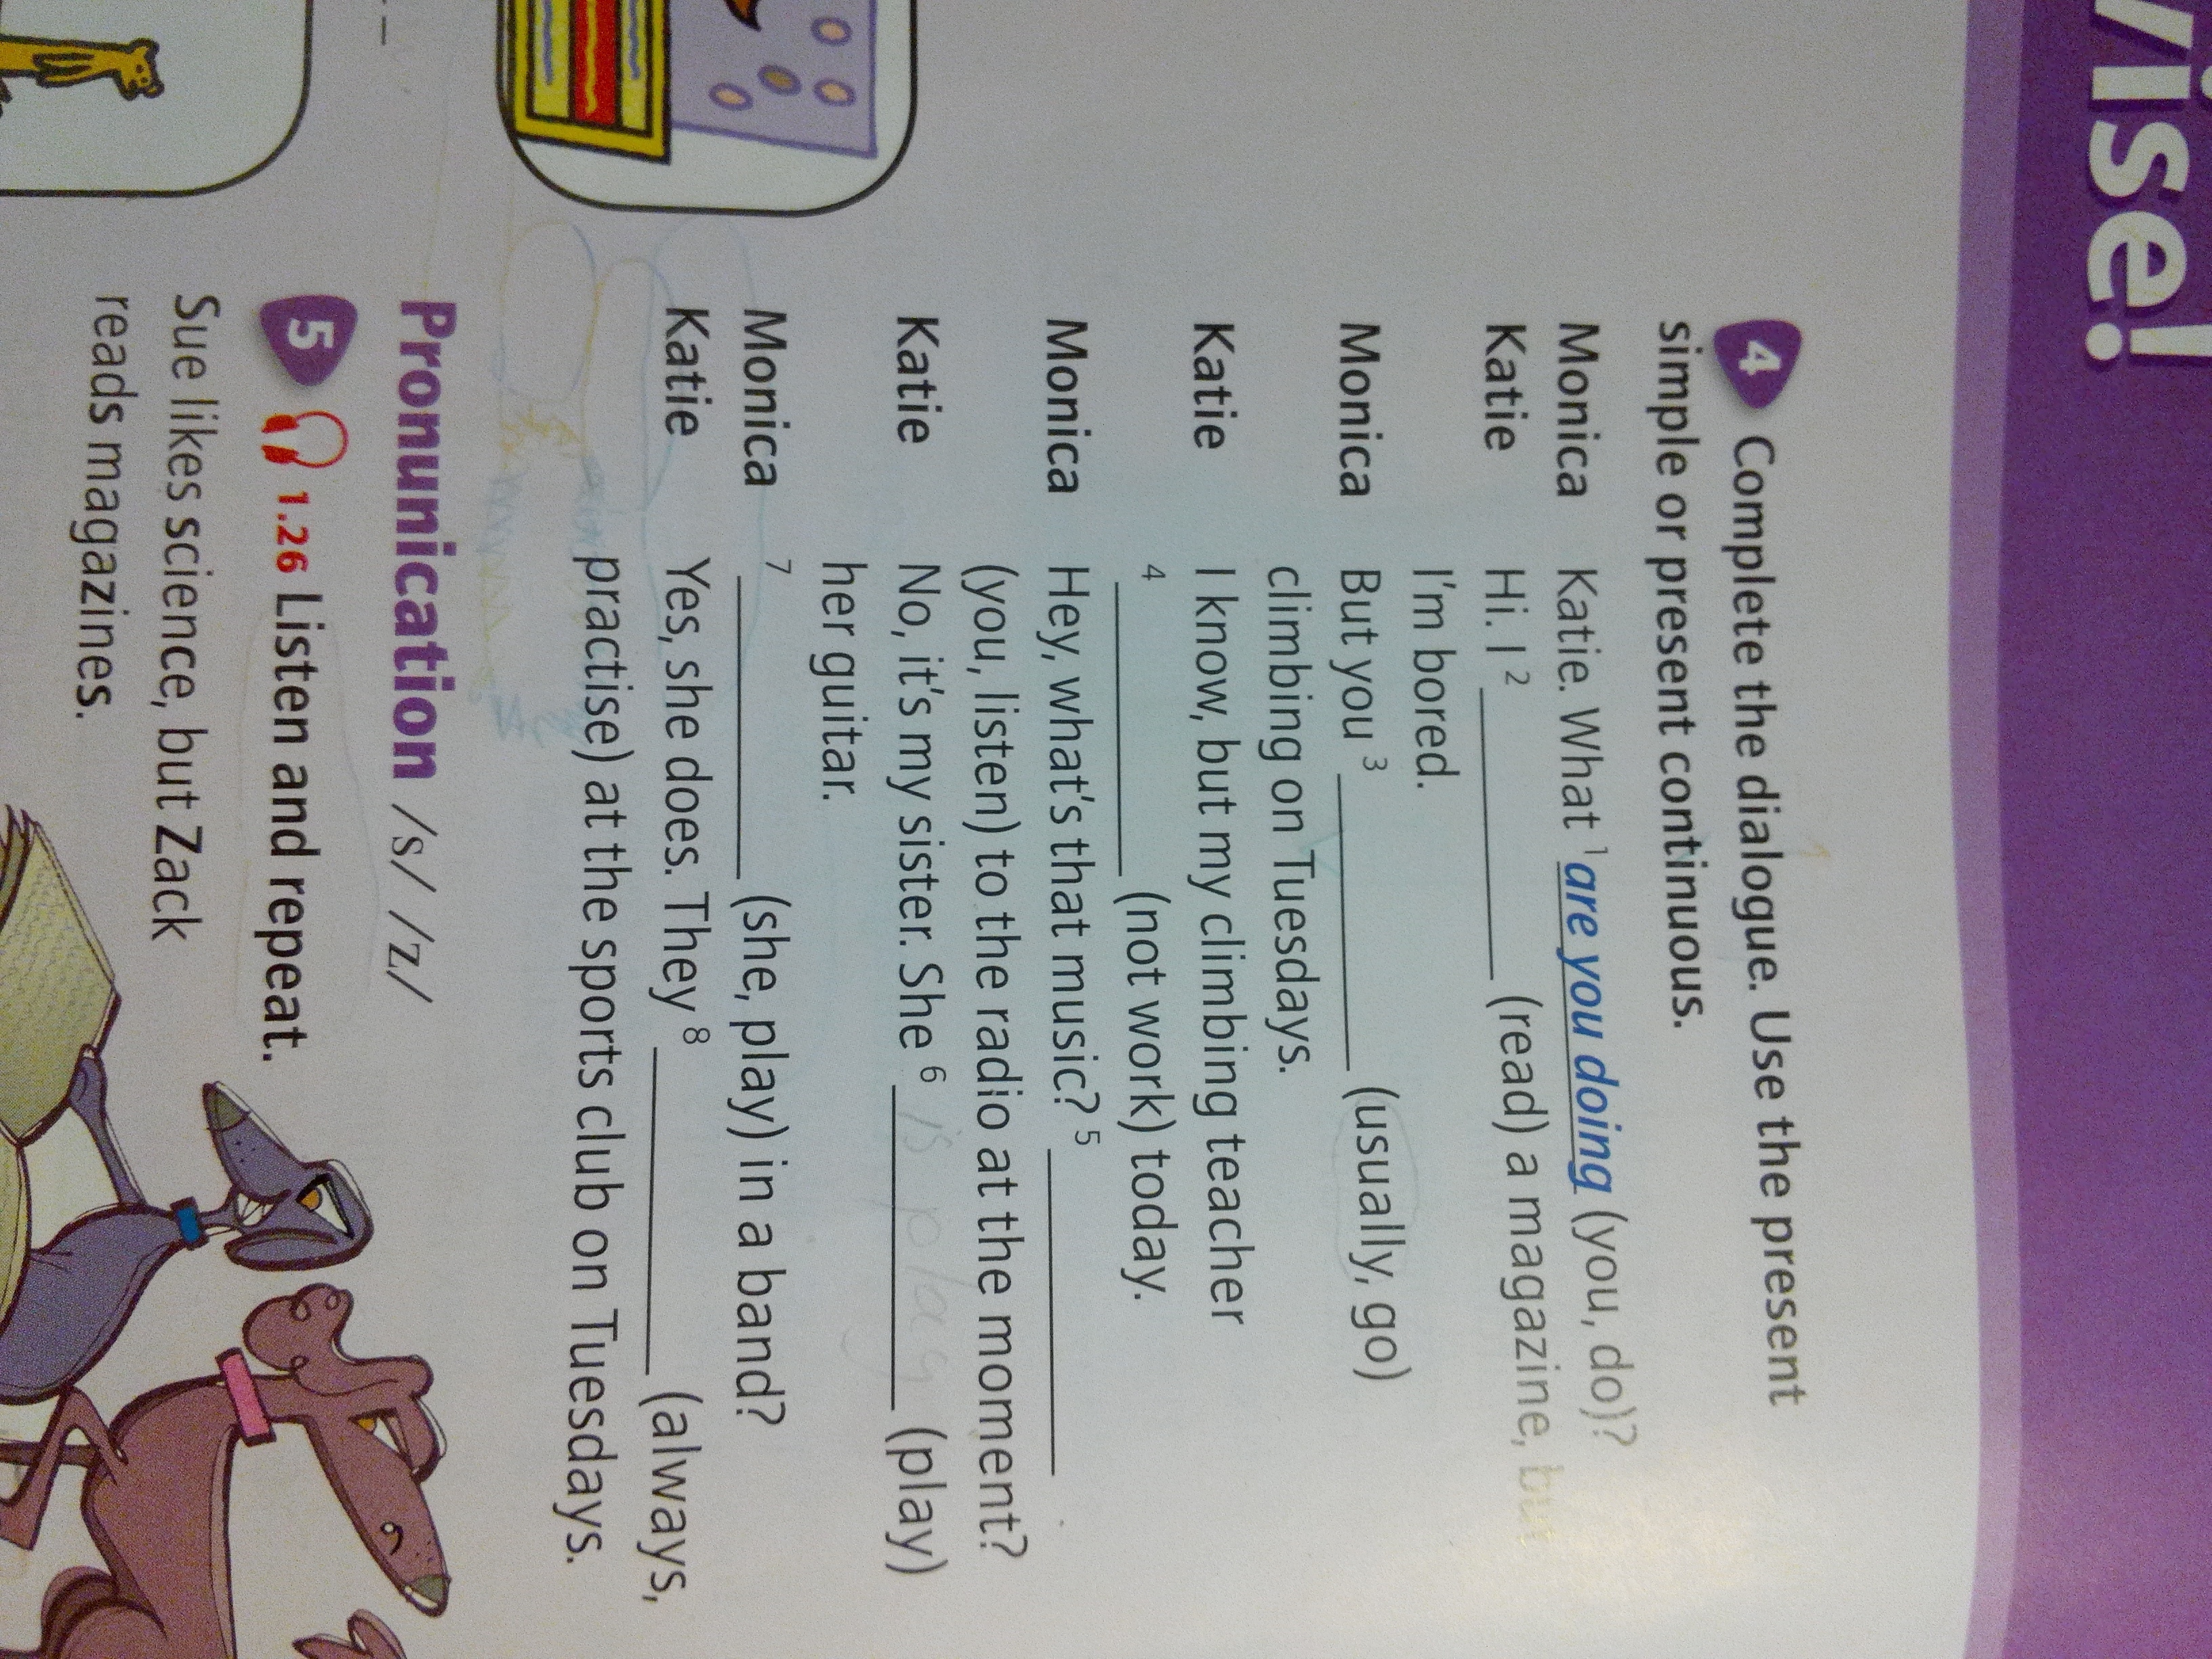 vise!
4 Complete the dialogue. Use the present
simple or present continuous.
Monica Katie. What 1 are you doing (you, do)?
Katie Hi. I 2 __________ (read) a magazine, but
I'm bored.
Monica But you 3 __________ (usually, go)
climbing on Tuesdays.
Katie I know, but my climbing teacher
4 __________ (not work) today.
Monica Hey, what's that music? 5 __________
(you, listen) to the radio at the moment?
Katie No, it's my sister. She 6 is play (play)
her guitar.
Monica 7 __________ (she, play) in a band?
Katie Yes, she does. They 8 __________ (always,
practise) at the sports club on Tuesdays.
Pronunication /s/ /z/
5 1.26 Listen and repeat.
Sue likes science, but Zack
reads magazines.